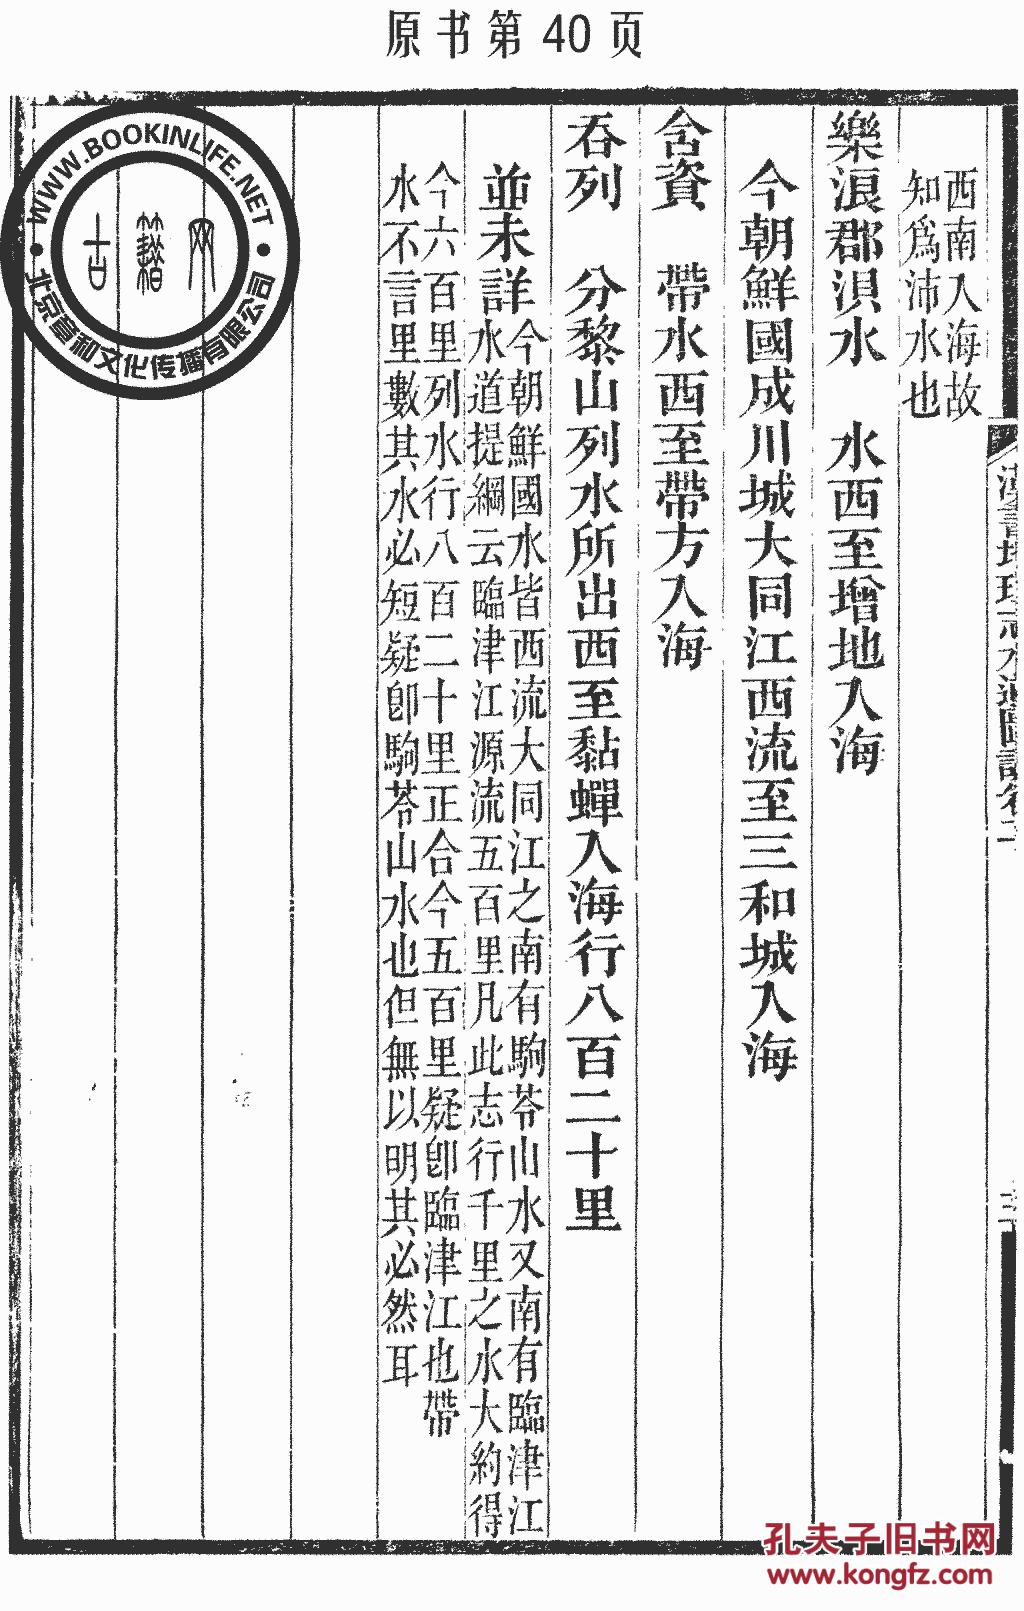 原书第 40 页
西南入海故
知爲沛水也
樂浪郡浿水　水西至增地入海
今朝鮮國成川城大同江西流至三和城入海
含資　帶水西至帶方入海
吞列　分黎山列水所出西至黏蟬入海行八百二十里
並未詳
今朝鮮國水皆西流大同江之南有駒苓山水又南有臨津江
水道提綱云臨津江源流五百里凡此志行千里之水大約得
今六百里列水行八百二十里正合今五百里疑卽臨津江也帶
水不言里數其水必短疑卽駒苓山水也但無以明其必然耳
WWW.BOOKINLIFE.NET
古籍网
北京章和文化传播有限公司
孔夫子旧书网
www.kongfz.com